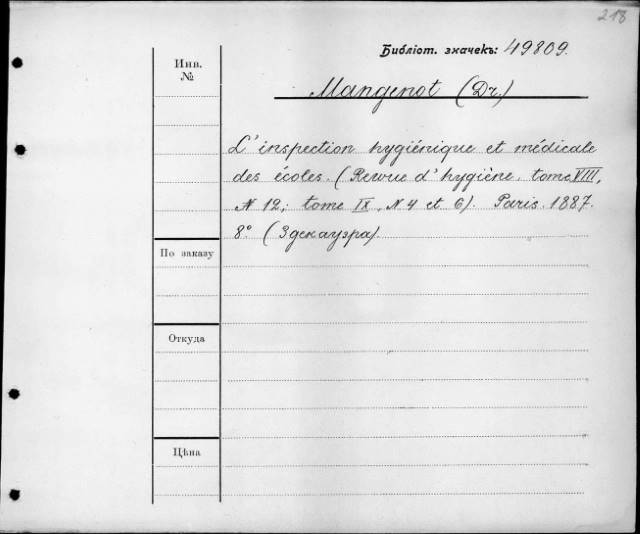 218
Библіот. значекъ: 49809.
Инв. №
Mangenot (Dr.)
L'inspection hygiénique et médicale
des écoles. (Revue d'hygiène. tome VIII,
N 12; tome IX, N 4 et 6). Paris. 1887.
8º (Здекауэра).
По заказу
Откуда
Цѣна